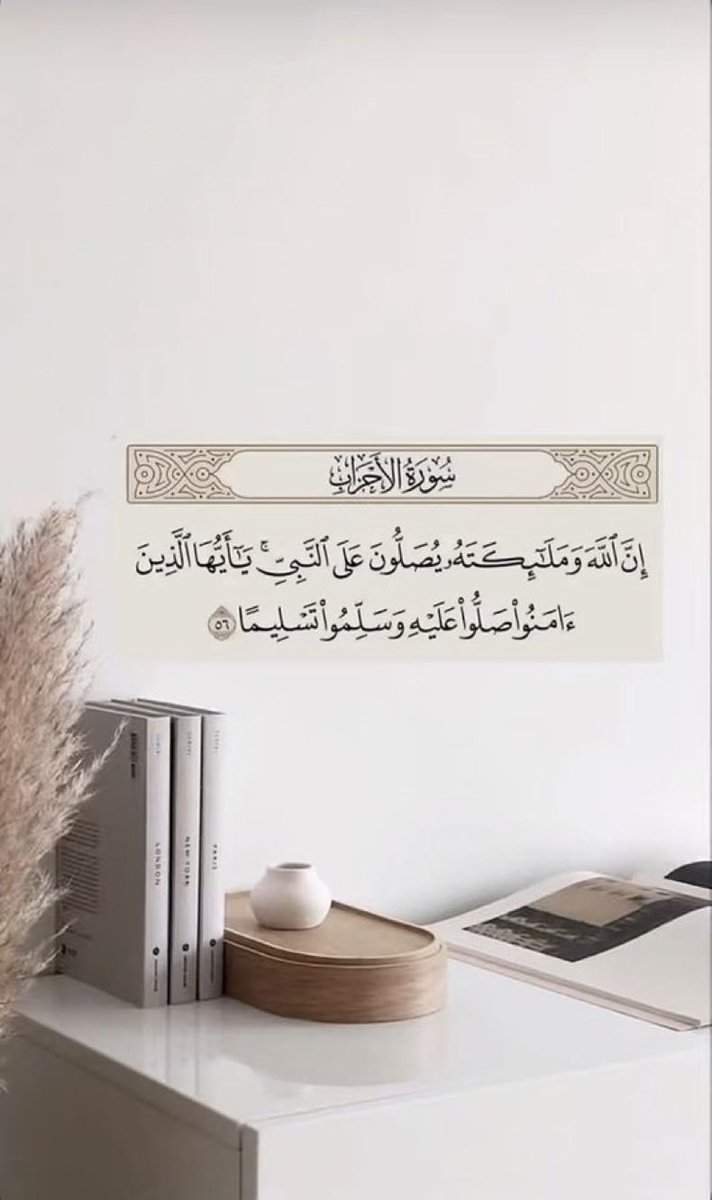 سُورَةُ الأَحْزَابِ
إِنَّ ٱللَّهَ وَمَلَـٰٓئِكَتَهُۥ يُصَلُّونَ عَلَى ٱلنَّبِىِّ ۚ يَـٰٓأَيُّهَا ٱلَّذِينَ
ءَامَنُوا۟ صَلُّوا۟ عَلَيْهِ وَسَلِّمُوا۟ تَسْلِيمًا ٥٦
LONDON
NEW YORK
PARIS